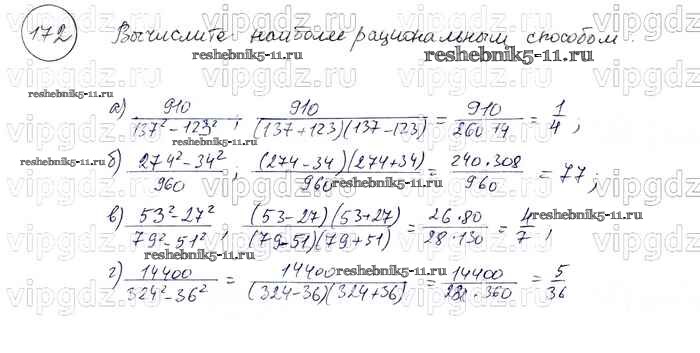 172 Вычислите наиболее рациональным способом:
reshebnik5-11.ru
reshebnik5-11.ru
а) 910 / (137² - 123²); 910 / ((137+123)(137-123)) = 910 / (260·14) = 1/4;
reshebnik5-11.ru
reshebnik5-11.ru
б) (274² - 34²) / 960; ((274-34)(274+34)) / 960 = (240·308) / 960 = 77;
reshebnik5-11.ru
в) (53² - 27²) / (79² - 51²); ((53-27)(53+27)) / ((79-51)(79+51)) = (26·80) / (28·130) = 4/7;
reshebnik5-11.ru
reshebnik5-11.ru
г) 14400 / (324² - 36²) = 14400 / ((324-36)(324+36)) = 14400 / (288·360) = 5/36
reshebnik5-11.ru
vipgdz vipgdz vipgdz vipgdz